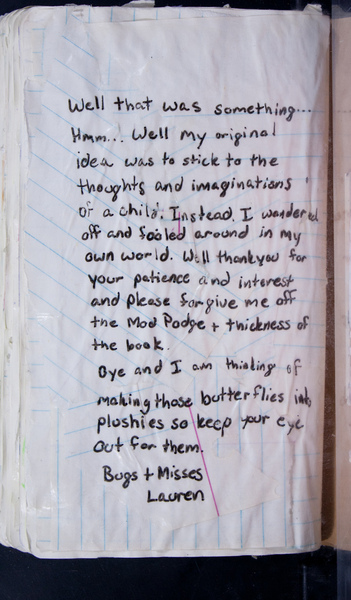 Well that was something...
Hmm... Well my original
idea was to stick to the
thoughts and imaginations
of a child. Instead I wandered
off and fooled around in my
own world. Well thankyou for
your patience and interest
and please forgive me off
the Mod Podge + thickness of
the book.
Bye and I am thinking of
making those butterflies into
plushies so keep your eye
out for them.
Bugs + Misses
Lauren